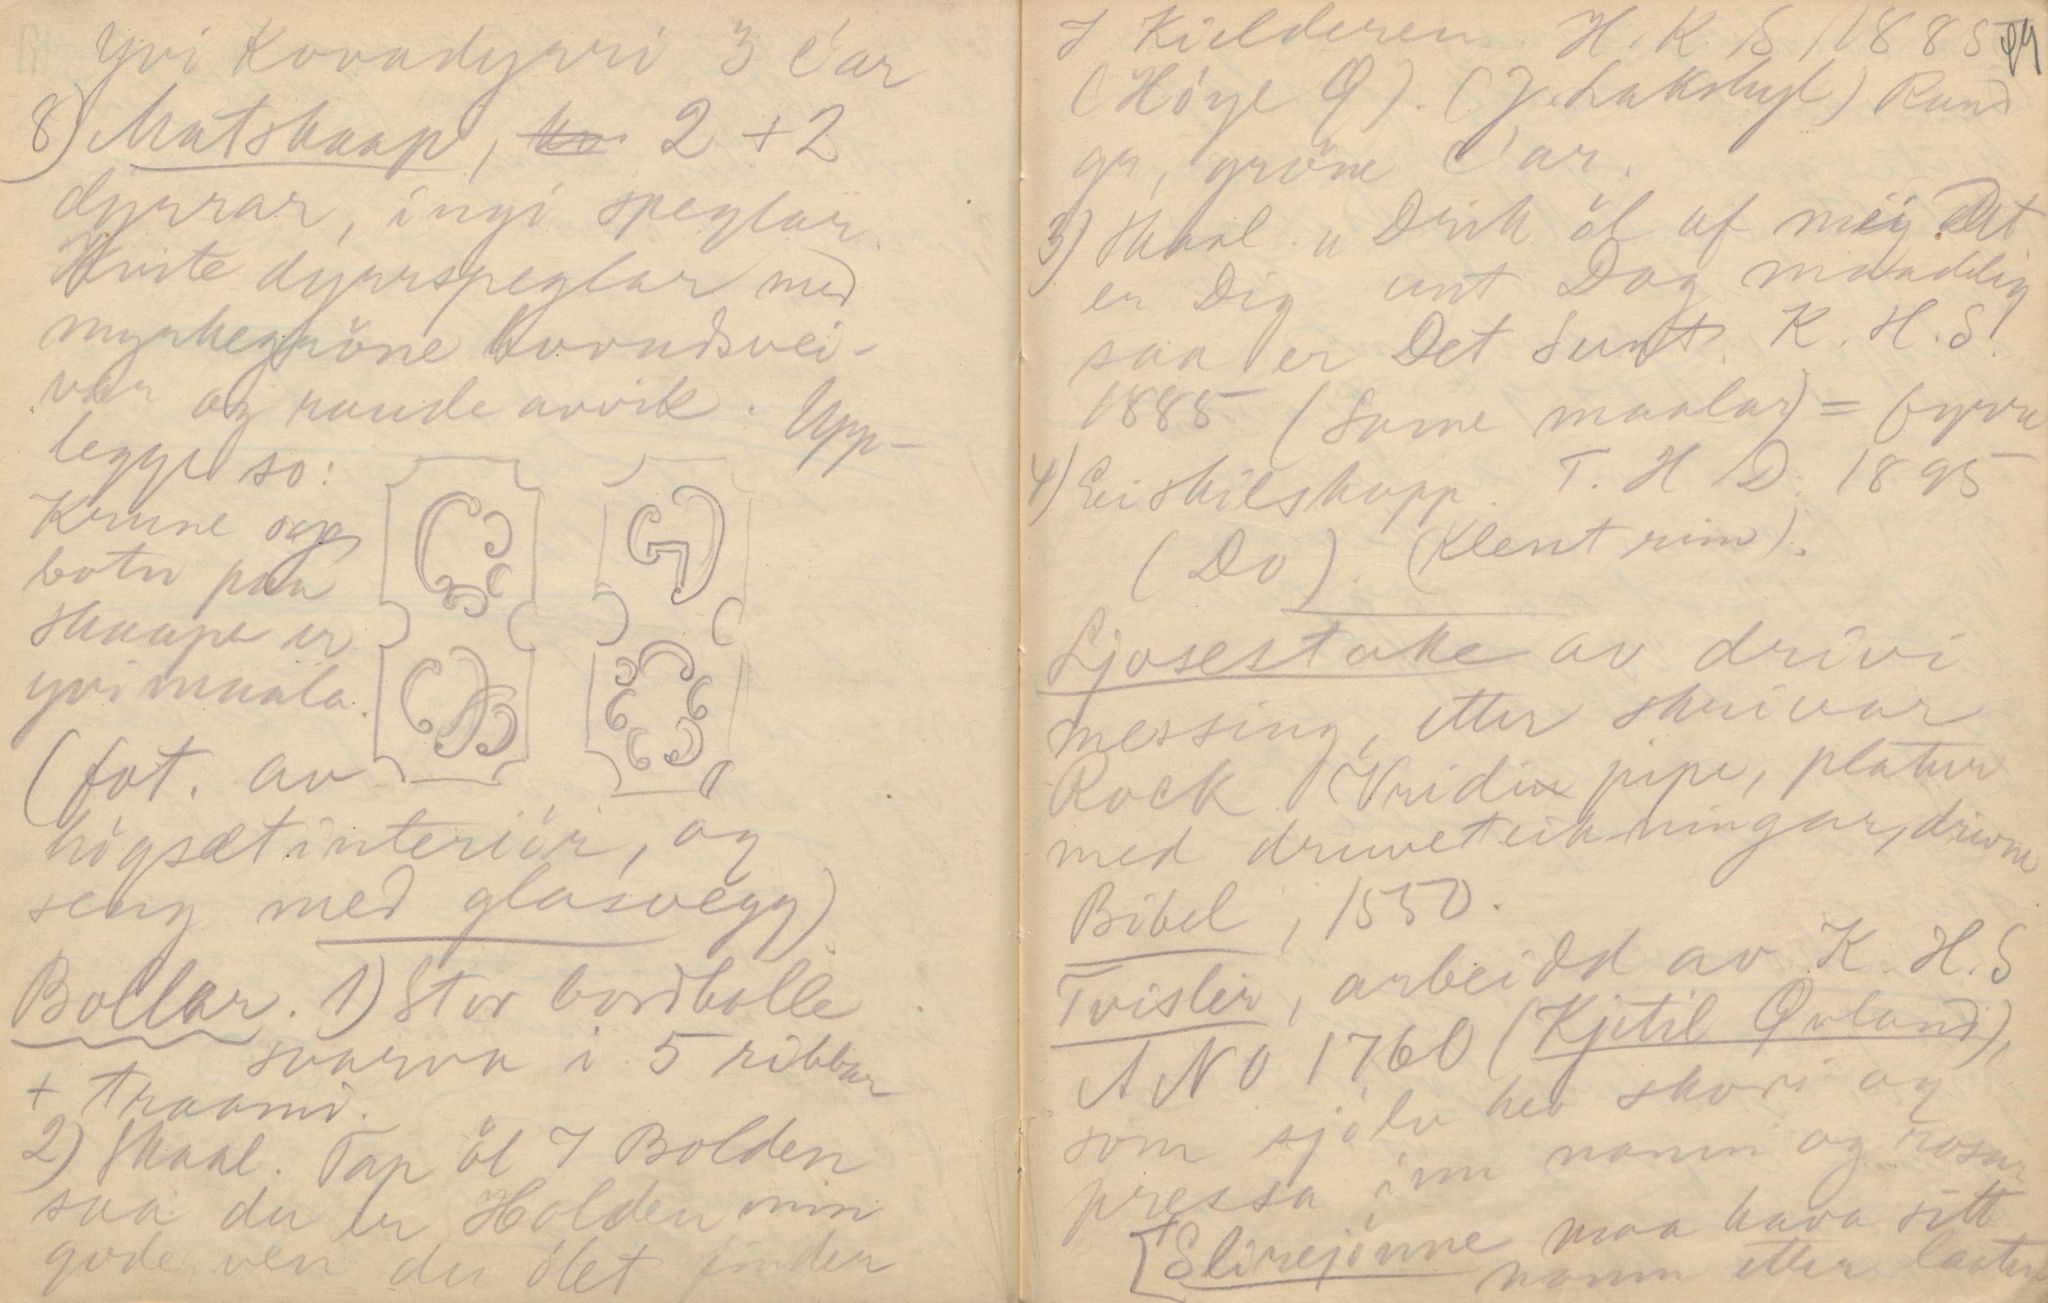 yvi Kovadyrri 3 C'ar
8) Matskaap, 2 + 2
dyrrar, ingi speglar.
Kvite dyrrspeglar med
myrkegröne hovudsvei-
var og raude avvik. Upp-
legge so:
Krune og
botn paa
skaape er
yvimaala.
(fot. av
högsætinteriör, og
seng med glasvegg).
Bollar. 1) Stor bordbolle
svarva i 5 ribbar
+ traami.
2) Skaal. Tap öl I Bolden
saa du er Holden min
gode ven du ölet finder
I Kielderen. H. K. S. 1885
(Höye Q). (J. Lakshyl) Raud
gr, gröne C'ar.
3) Skaal. Drik öl af mig Det
er Dig unt Dog maadelig
saa er Det Sunt. K. H. S.
1885 (Same maalar) = fyrre
4) Eiskilskopp. T. H. D. 1895
(Do). (Klent rim).
Ljosestake av drivi
messing, etter skrivar
Rock. (Vridin pipe, platur
med druveteikningar, drivne
Bibel, 1550.
Tvisler, arbeidd av K. H. S
ANO 1760 (Kjetil Qvland),
som sjölv hev skori og
pressa inn namn og rosur
[+ Slirejönne maa hava sitt
namn etter laaten